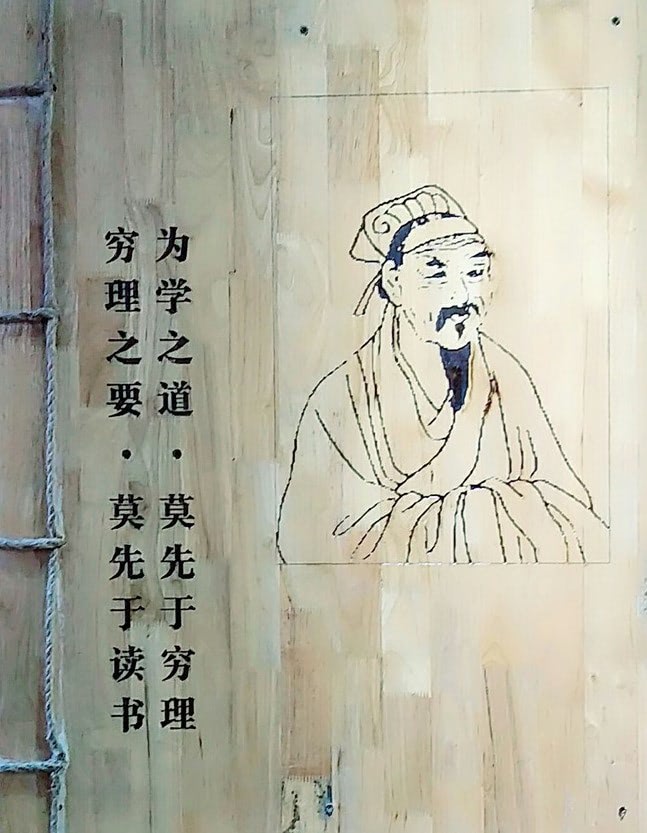 为学之道·莫先于穷理
穷理之要·莫先于读书